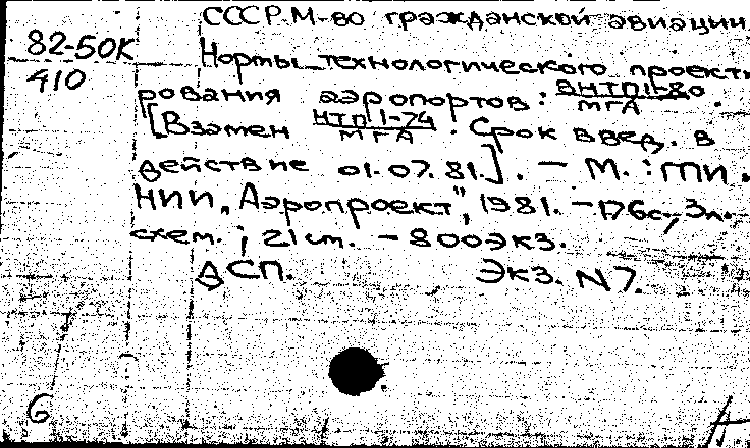 СССР. М-во гражданской авиации
82-50К
410
Нормы технологического проекти
рования аэропортов: ВНТП 1-80
МГА.
[Взамен НТП 1-74
МГА. Срок введ. в
действие 01.07.81.]. — М.: ГПИ.
НИИ „Аэропроект", 1981. - 176с., 3л.
схем.; 21 см. - 800экз.
ДСП. Экз. N7.
6